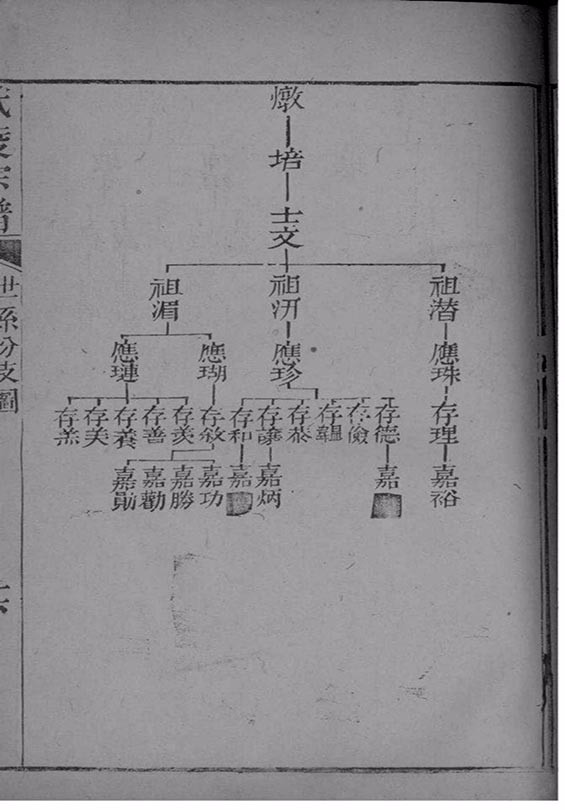 燉
培
士文
祖潛
祖汧
祖湄
應珠
應珍
應瑚
應璉
存理
存德
存儉
存恭
存讓
存和
存敘
存羨
存善
存養
存美
存羔
嘉裕
嘉
嘉炳
嘉
嘉功
嘉勝
嘉勸
嘉勛
宗譜
世系分支圖